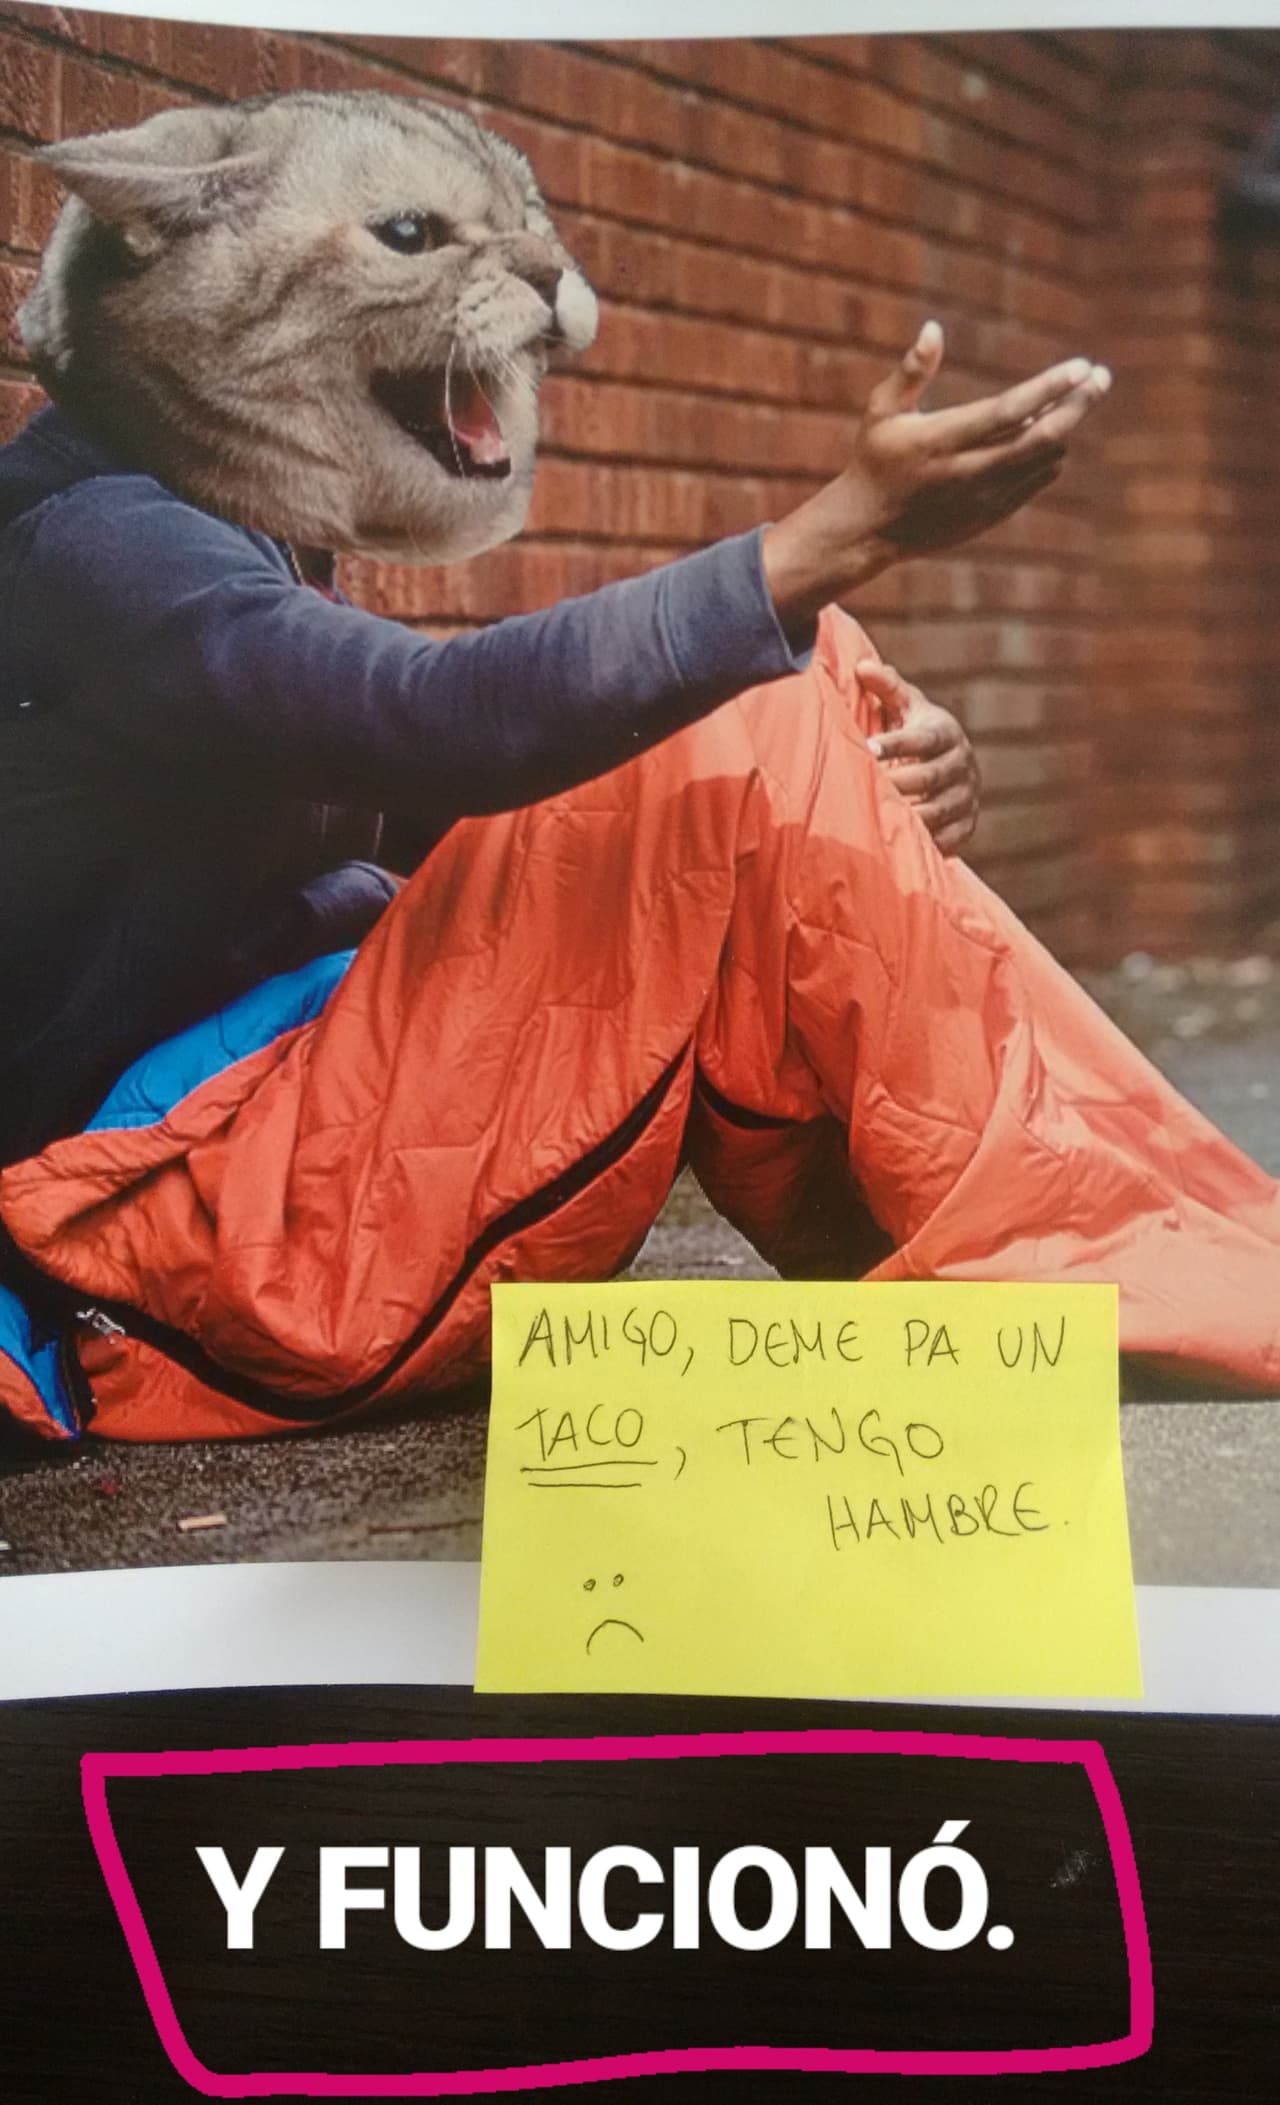 AMIGO, DEME PA UN
TACO, TENGO
HAMBRE.
Y FUNCIONÓ.